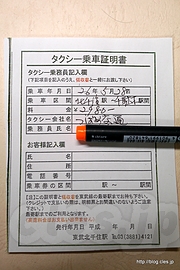 タクシー乗車証明書
タクシー乗務員記入欄
(下記事項を記入のうえ、領収書と一緒にお渡し下さい。)
乗車年月日 26年5月28日
乗車区間 北千住駅〜 駅間
料金 ¥2980-
タクシー会社名 つばめ交通
お客様記入欄
氏名
住所
電話番号
乗車券の区間 駅〜 駅間
発行年月日 平成 年 月 日
東武北千住駅 ☎03(3881)4121
http://blog.cles.jp